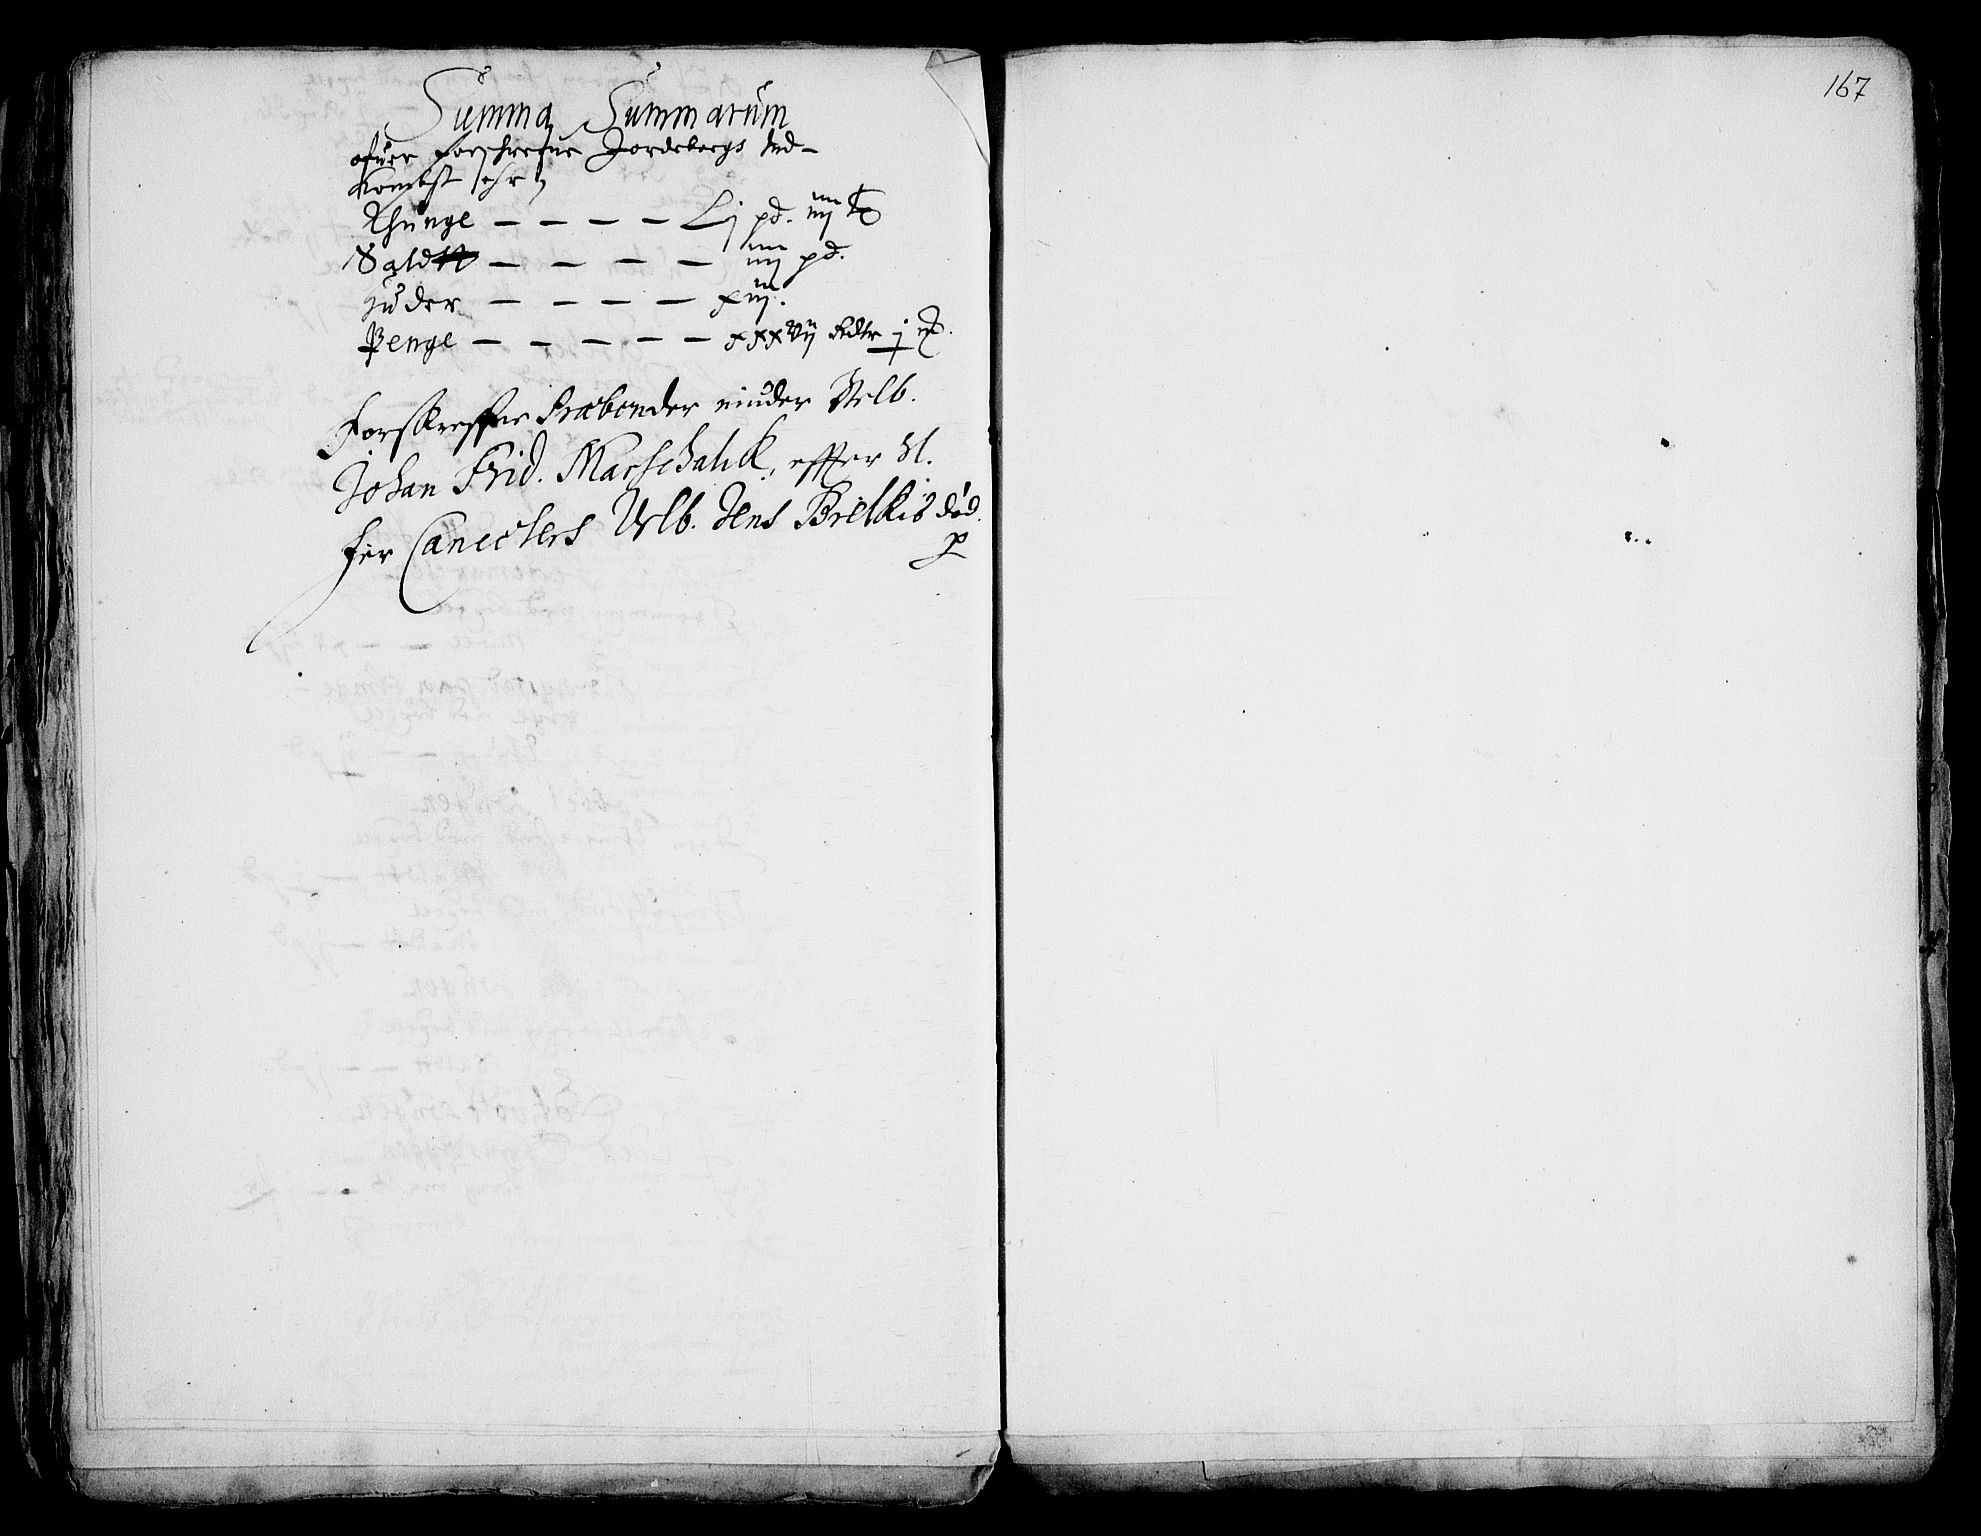 Summa Summarum
ofuer forschrefne Jordebergs Ind-
kombst ehr
Thunge — — — — Lj pd. iiij
Saldtt — — — — iiij pd.
Huder — — — — xiij.
Penge — — — — — xxxvij Rdlr j
Forskreffne Præbender niuder Velb.
Johan Frid. Marschalck, effter Sl.
Her Cancelers Velb. Jens Bielkis død.
167